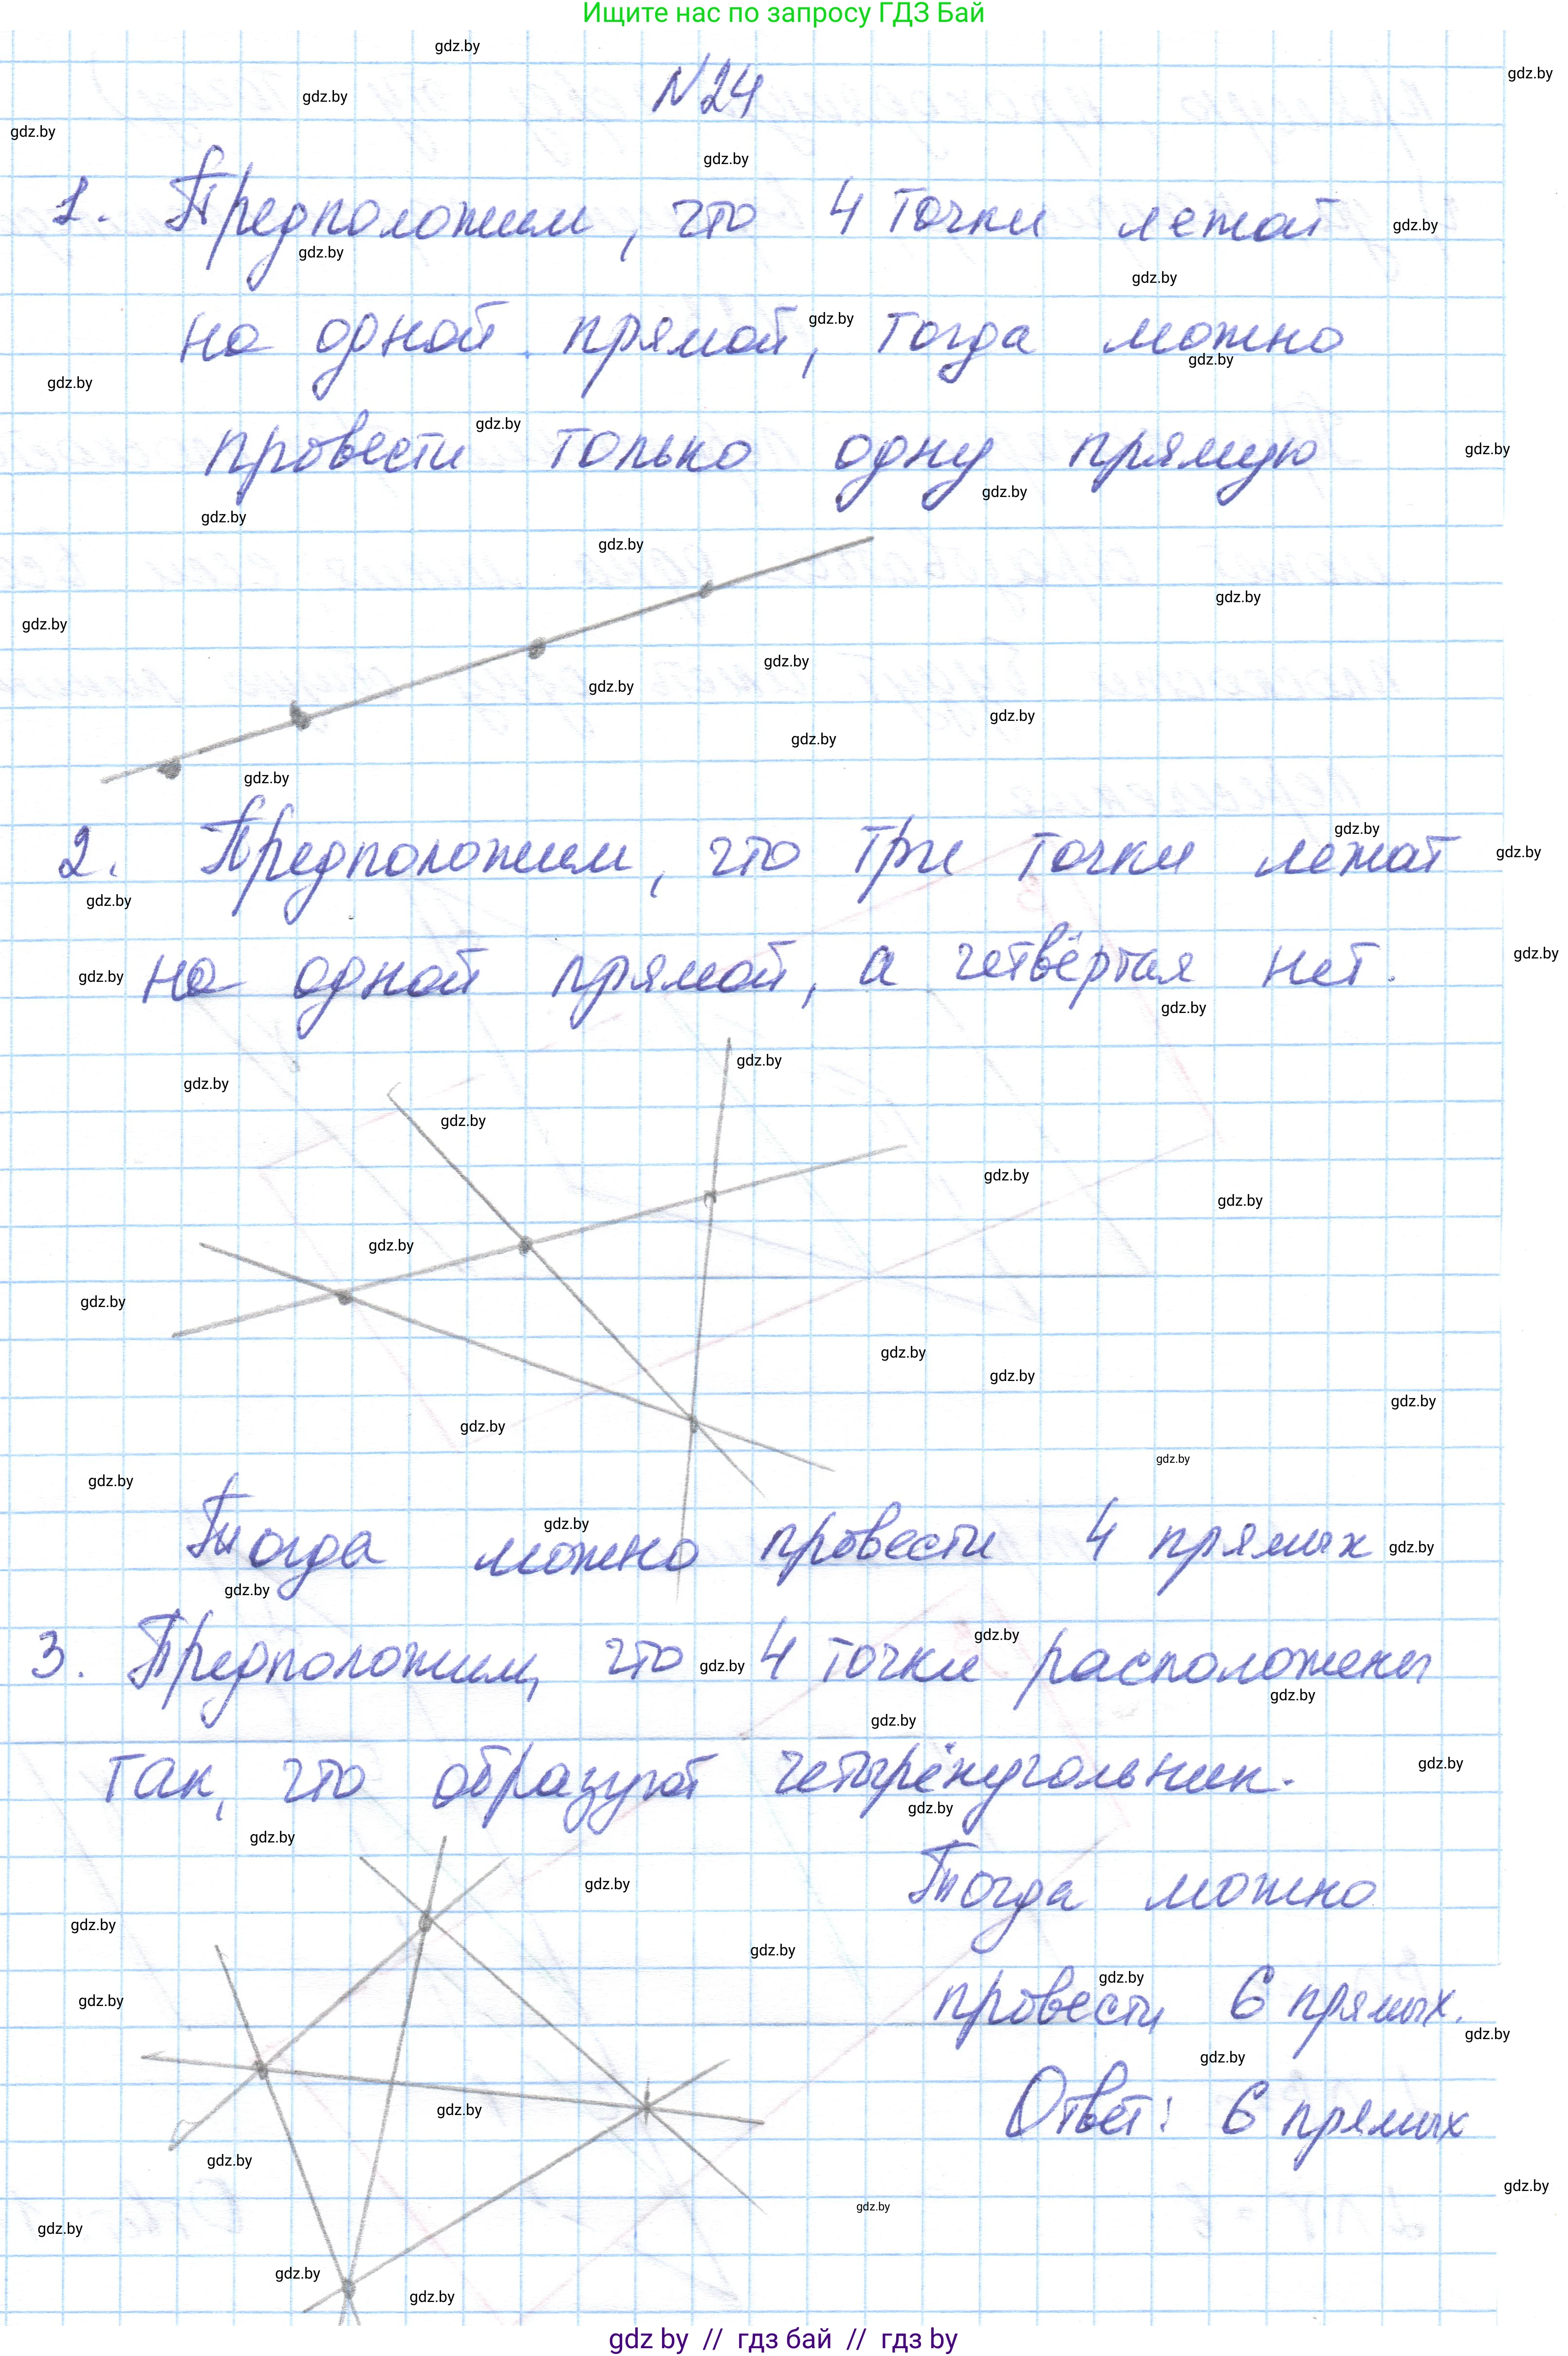 Ищите нас по запросу ГДЗ Бай
N24
1. Предположим, что 4 точки лежат
на одной прямой, тогда можно
провести только одну прямую
2. Предположим, что три точки лежат
на одной прямой, а четвёртая нет.
Тогда можно провести 4 прямых
3. Предположим, что 4 точки расположены
так, что образуют четырёхугольник.
Тогда можно
провести 6 прямых.
Ответ: 6 прямых
gdz by // гдз бай // гдз by